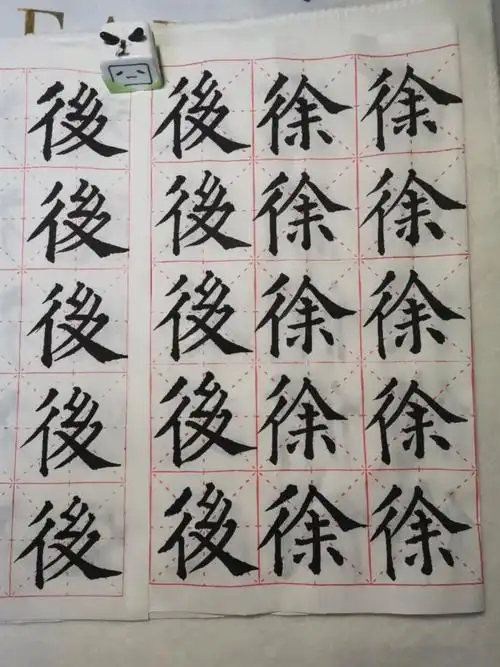 徐徐徐徐徐
徐徐徐徐徐
後後後後後
後後後後後